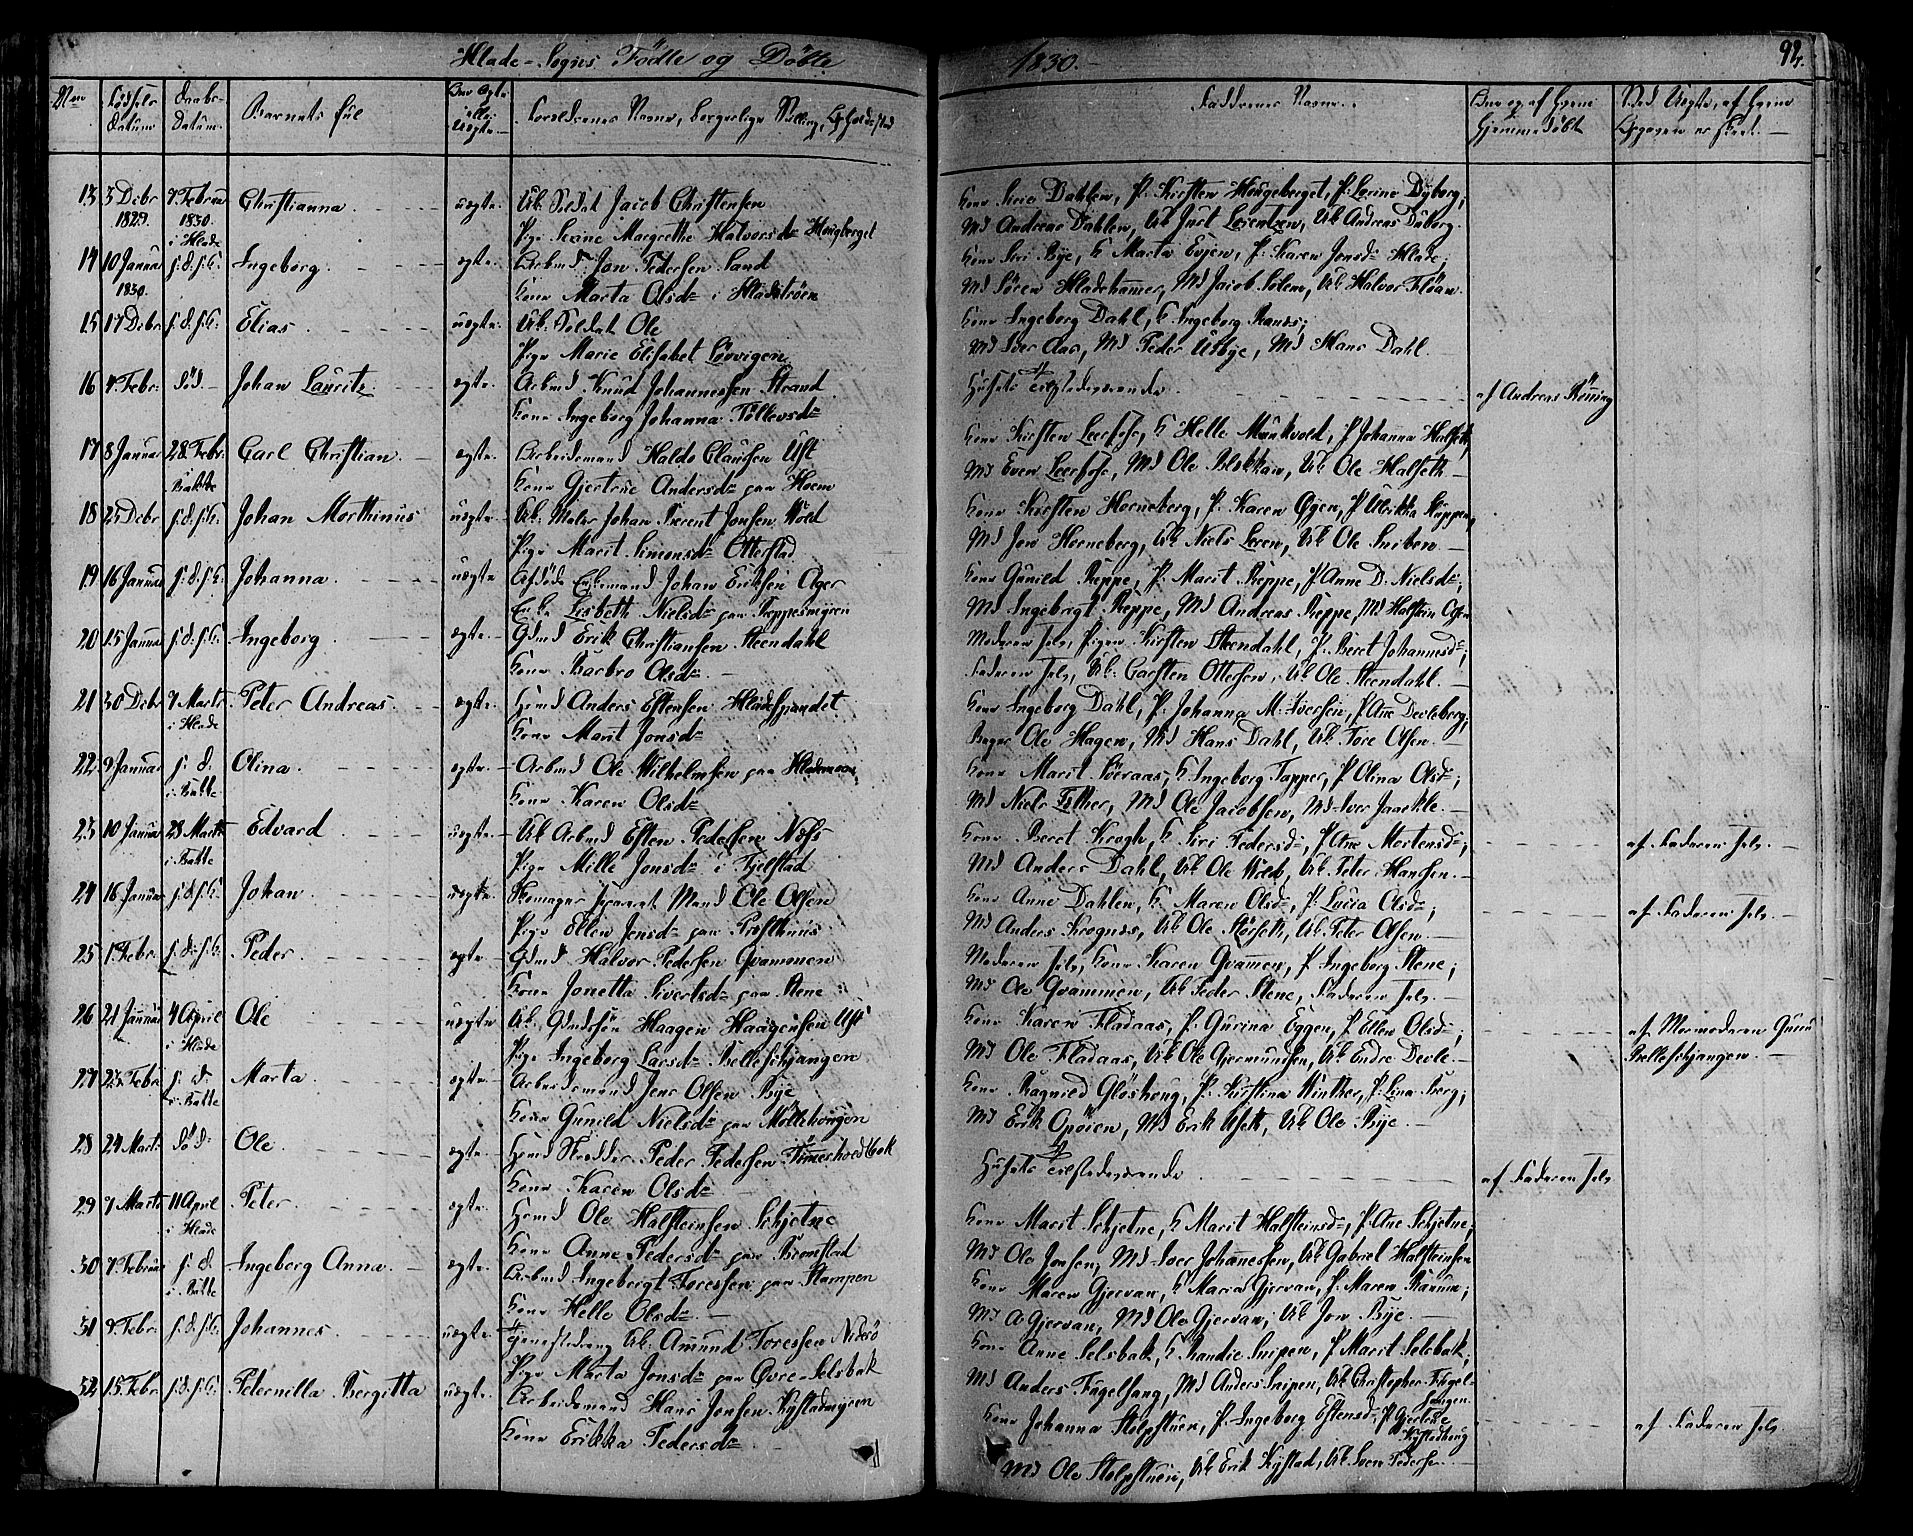 Hlade-Sogns Födte og Döbte
1830.-
92.
Nm
Fødsels Datum
Daabs-Datum
Barnets fül
Om Ægte eller Uægte
Forældrenes Navne, borgerlige Stilling, Opholdsstad
Faddernes Navne.
Om og af hvem Hjemmedöbt
Ved Uægte, af hvem Opgaven er skeet.
13 3 Decbr 1829. 7 Februar 1830. i Hlade Christianna uægte. Uk: Soldat Jacob Christensen
Pige Serine Margrethe Halvorsdr Hougberget
Kone Siri Dahlen, P. Kirsten Hougeberget, P: Lorine Dyborg,
Md Andreas Dahlen, Uk Just Lorentzen, Uk Andreas Duborg.
14 10 Januar 1830. s: d: s: K: Ingeborg. ægte. Arbmd: Jon Pedersen Sand
Kone Marta Olsdr i Hladstrøen
Kone Siri Bye, K Marta Evjen, P. Karen Jonsdr Hlade;
Md Sören Hladehamer, Md Jacob Solem, Uk Halvor Floan.
15 17 Decbr s: d: s: K: Elias. uægte. Uk: Soldat Ole
Pige Marie Elisabet Lövvigen
Kone Ingeborg Dahl, K. Ingeborg Ranes;
Md Iver Aas, Md Peder Usbye, Md Hans Dahl.
16 4. Febr: död. Johan Lauritz ægte Arbmd Knud Johannessen Strand
Kone Ingeborg Johanna Tollevsdr
Husets Tilstedeværende
af Andreas Rönning
17 8 Januar 28 Febr: i Bakke Carl Christian. ægte. Arbeidsmand Haldo Clausen Ust
Kone Gjertrue Andersdr paa Hoem
Kone Kirsten Leerfose, K Helle Munkvold, P Johanna Halseth,
Md Even Leerfose, Md Ole Blekkan, Uk Ole Halseth
18 25 Decbr s: d: s: K: Johan Morthinus uægte Uk: Maler Johan Precent Jonsen Wold
Pige Marit Simonsdr Otterstad
Kone Kirsten Horneberg, P. Karen Øyen, P Ulrikka Kuppen,
Md Jon Horneberg, Uk Niels Leren, Uk Ole Sniben
19 16 Januar s: d: s: K: Johanna. uægte. Afdöde Enkemand Johan Eriksen Ager
Enke Lisbeth Nielsdr paa Reppesmyren
Kone Gunild Reppe, P: Marit Reppe, P Anne D. Nielsdr;
Md Ingebrigt Reppe, Md Andreas Reppe, Md Halstein Olsen
20 15 Januar s: d: s: K: Ingeborg ægte. Gdmd Erik Christiansen Steendahl
Kone Barbro Olsdr
Moderen selv, Pigen Kirsten Steendahl, P. Beret Johannesdr;
Faderen selv, Uk: Carsten Ottersen, Uk Ole Steendahl.
21 30 Decbr 7 Marts i Hlade Peter Andreas. ægte. Hsmd Anders Estensen Hladespandet
Kone Marit Jonsdr
Kone Ingeborg Dahl, P. Johanna M. Iversen, P. Ane Devleberg;
Bager Ole Hagen, Md Hans Dahl, Uk Tore Olsen.
22 9 Januar s: d. i Bakke Olina. ægte. Arbmd Ole Wilhelmsen paa Hlademoen
Kone Karen Olsdr
Kone Marit Sveraas, K. Ingeborg Tapper, P Olina Olsdr;
Md Niels Esther, Md Ole Jacobsen, Md Iver Jaarkle.
23 10 Januar 28 Marts i Bakke Edvard uægte Uk Arbmd Esten Pedersen Næss
Pige Mille Jonsdr i Fjelstad
Kone Beret Krogh, K Siri Pedersdr, P Ane Mortensdr;
Md Anders Dahl, Uk Ole Weeb, Uk Peter Hansen.
af Faderen selv.
24 16 Januar s: d: s: K: Johan. uægte. Skomager separat Mand Ole Olsen
Pige Ellen Jensdr paa Presthuus
Kone Anne Dahlen, K Maren Olsdr, P. Lucia Olsdr;
Md Anders Krognes, Uk Ole Storseth, Uk Peter Olsen.
af Faderen selv.
25 1. Febr. s: d: s: K: Peder. ægte Gdmd Halvor Pedersen Qvammen
Kone Jonetta Sivertsdr paa Stene
Moderen selv, Kone Karen Qvammen, P. Ingeborg Stene;
Md Ole Qvammen, Uk Peder Stene, Faderen selv.
26 21 Januar 4 April i Hlade Ole uægte Uk. Gmdsön Haagen Haagensen Ust
Pige Ingeborg Larsdr Belleskjangen
Kone Karen Fladaas, P. Gurina Eggen, P Ellen Olsdr;
Md Ole Fladaas, Uk Ole Gjermundsen, Uk Endre Devle.
af Mormoderen Guru
Belleskjangen.
27 23 Febr s: d: i Bakke Marta. ægte. Arbeidsmand Jens Olsen Bye
Kone Gunild Nielsdr paa Möllebougen
Kone Ragnild Glöshoug, P. Kirstina Winther, P. Lina Berg;
Md Erik Opoien, Md Erik Useth, Uk Ole Bye.
28 24 Marts död: Ole ægte Hsmd Skrædder Peder Pedersen Tömesholdtbak
Kone Karen Olsdr
Husets Tilstedeværende
af Faderen selv
29 7 Marts 11 April i Hlade Peter. ægte. Hsmd Ole Halsteinsen Schjetne
Kone Anne Pedersdr paa Bromstad
Kone Marit Schjetne, K Marit Halsteinsdr, P. Ane Schjetne;
Md Ole Jonsen, Md Iver Johannessen, Uk Gabriel Halsteinsen
30 7. Februar s: d i Bakke Ingeborg Anna. ægte. Arbmd Ingebrigt Toressen paa Stampen
Kone Helle Olsdr
Kone Maren Gjervan, K Maria Gjervan, P. Maren Ranum;
Md A Gjervan, Md Ole Gjervan, Uk Jon Bye.
31 9. Febr. s: d: s: K: Johannes. uægte. Tjenestedreng Uk: Amund Toressen Niderö
Pige Marta Jonsdr paa Övre-Selsbak
Kone Anne Selsbak, K Randie Snipen, P Marit Selsbak;
Md Anders Fugelsang, Md Anders Snipen, Uk Christopher Fugel-
sangen.
32 15. Febr. s: d: s: K: Peternilla Bergitta uægte. Arbeidsmand Hans Jonsen Kystadmyren
Kone Erikka Pedersdr
Kone Johanna Stolpstuen, P. Ingeborg Estensdr, P Gjertrue
Kystadhoug
Md Ole Stolpstuen, Uk Erik Kystad, Uk Sven Pedersen
af Faderen selv